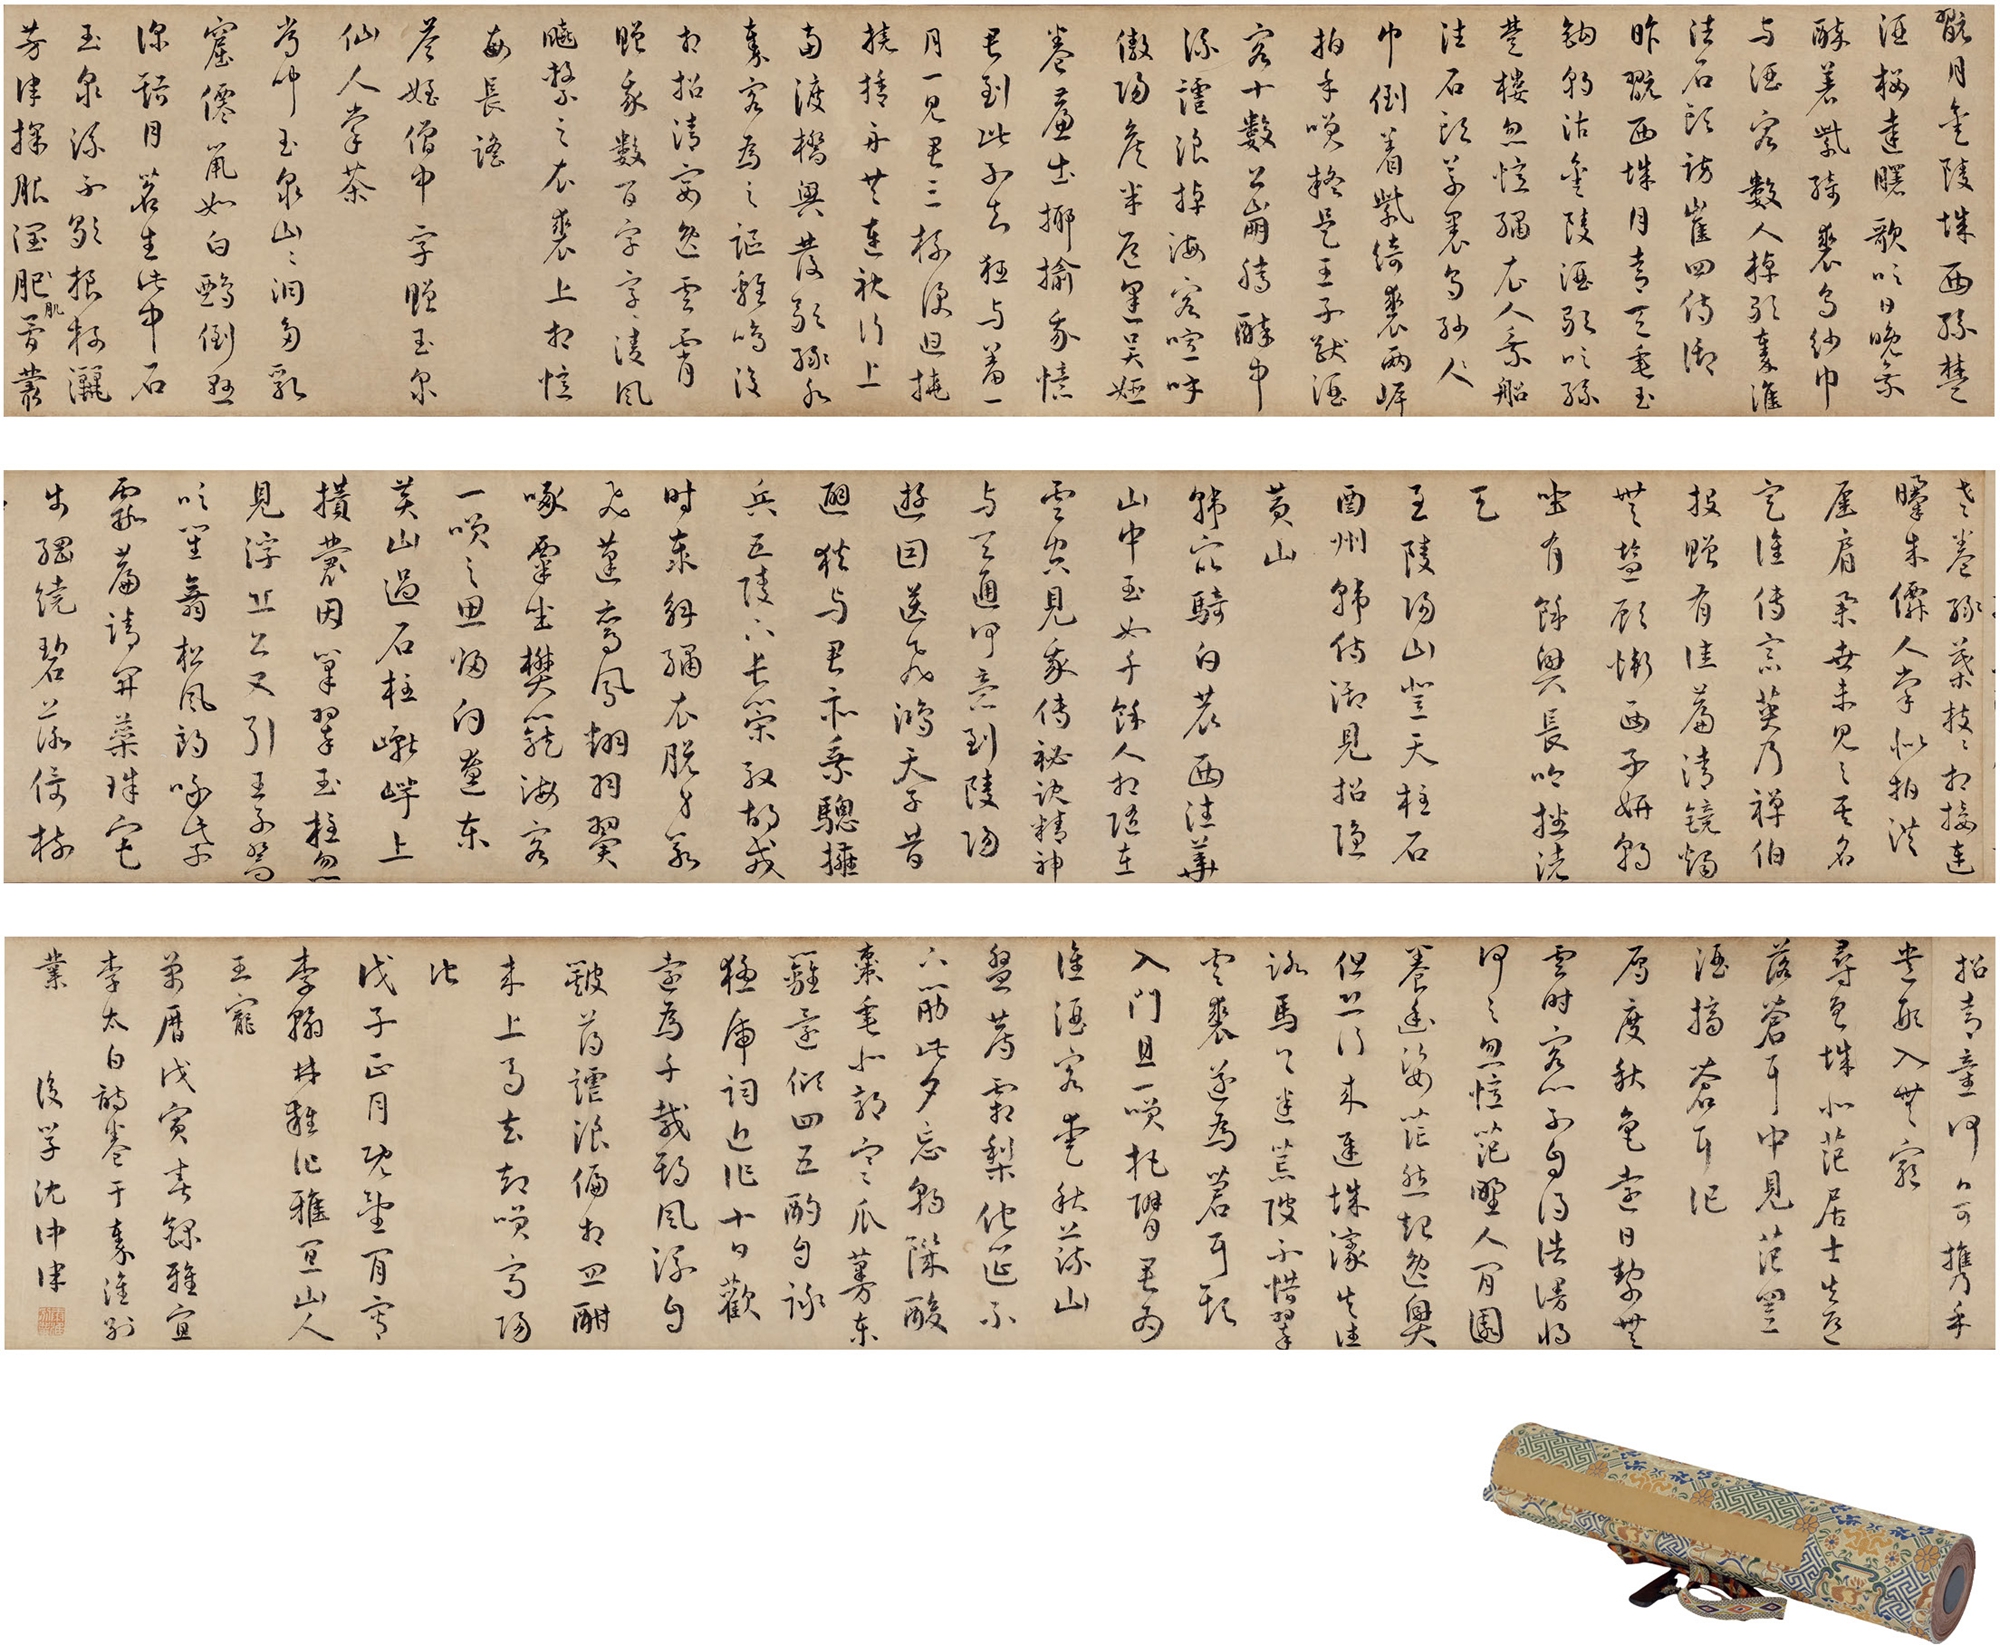 翫月金陵城西孫楚
酒樓達曙歌吹日晚乘
醉著紫綺裘烏紗巾
与酒客數人棹歌秦淮
往石頭訪崔四侍御
昨翫西城月青天垂玉
鈎朝沽金陵酒歌吹孫
楚樓忽憶繡衣人乘船
往石頭草裹烏紗人
巾倒着紫綺裘兩岸
拍手笑疑是王子猷酒
客十數公崩騰醉中
流謔浪掉海客喧呼
傲陽侯半道逢吳姬
卷簾出揶揄我憶
君到此不知狂与羞一
月一見君三杯便迴橈
橈捨舟共連袂行上
南渡橋興發歌綠水
秦客為之謳雞鳴復
相招清宴逸雲霄
贈我數百字字々凌風
飈繫之衣裘上相憶
每長謠
荅姪僧中孚贈玉泉
仙人掌茶
常聞玉泉山々洞多乳
窟僊鼠如白鴉倒懸
深谿月茗生此中石
玉泉流不歇根柯灑
芳津採服潤肥肌骨叢
老卷綠葉枝々相接連
曝成僊人掌似拍洪
崖肩舉世未見之其名
定誰傳宗英乃禪伯
投贈有佳篇清鏡燭
無鹽顧慚西子妍朝
坐有餘興長吟播諸
天
至陵陽山登天柱石
酬州韓侍御見招隱
黃山
韓眾騎白鹿西往華
山中玉女千餘人相隨在
雲空見我傳祕訣精神
与天通何意到陵陽
遊目送飛鴻天子昔
避狄与君亦乘驄擁
兵五陵下長策馭胡戎
時泰解繡衣脫身若
飛蓬鸞鳳翻羽翼
啄粟坐樊籠海客
一笑之思歸向遼東
黃山過石柱巘崿上
攢叢因巢翠玉柱忽
見浮丘公又引王子喬
吹笙舞松風朗咏紫
霞篇請開蕊珠宮
步綱繞碧落倚樹
招青童何日可攜手
遺形入無窮
尋魯城北范居士失道
落蒼耳中見范置
酒摘蒼耳作
雁度秋色遠日靜無
雲時客心不自得浩漫將
何之忽憶范野人閒園
養幽姿茫然起逸興
但恐行來遲城濠失往
路馬首迷荒陂不惜翠
雲裘遂為蒼耳欺
入門且一笑把臂君為
誰酒客愛秋蔬山
盤薦霜梨他筵不
下筯此夕忘朝饑酸
棗垂北郭寒瓜蔓東
籬還傾四五酌自詠
猛虎詞近作十日歡
遠為千載期風流自
簸蕩謔浪偏相宜酣
來上馬去却笑高陽
池
戊子正月既望閒書
李翰林雜作雅宜山人
王寵
萬曆戊寅春録雅宜
李太白詩卷于秦淮別
業 後學沈津